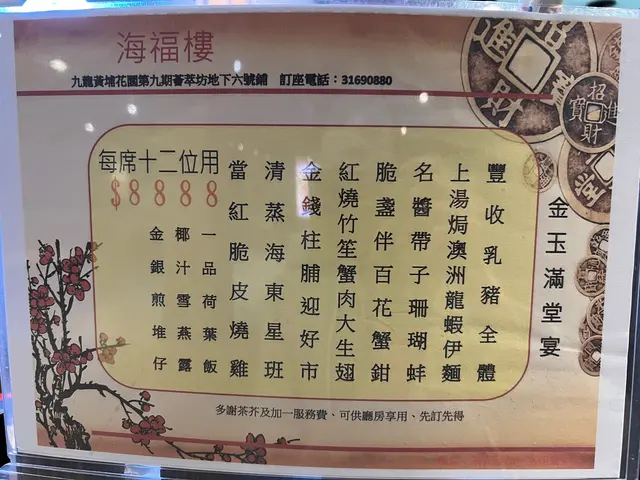 海福樓
九龍黃埔花園第九期薈萃坊地下六號鋪 訂座電話：31690880
金玉滿堂宴
豐收乳豬全體
上湯焗澳洲龍蝦伊麵
名醬帶子珊瑚蚌
脆盞伴百花蟹鉗
紅燒竹笙蟹肉大生翅
金錢柱脯迎好市
清蒸海東星班
當紅脆皮燒雞
每席十二位用
$8888
一品荷葉飯
椰汁雪燕露
金銀煎堆仔
多謝茶芥及加一服務費、可供廳房享用、先訂先得
招財進寶